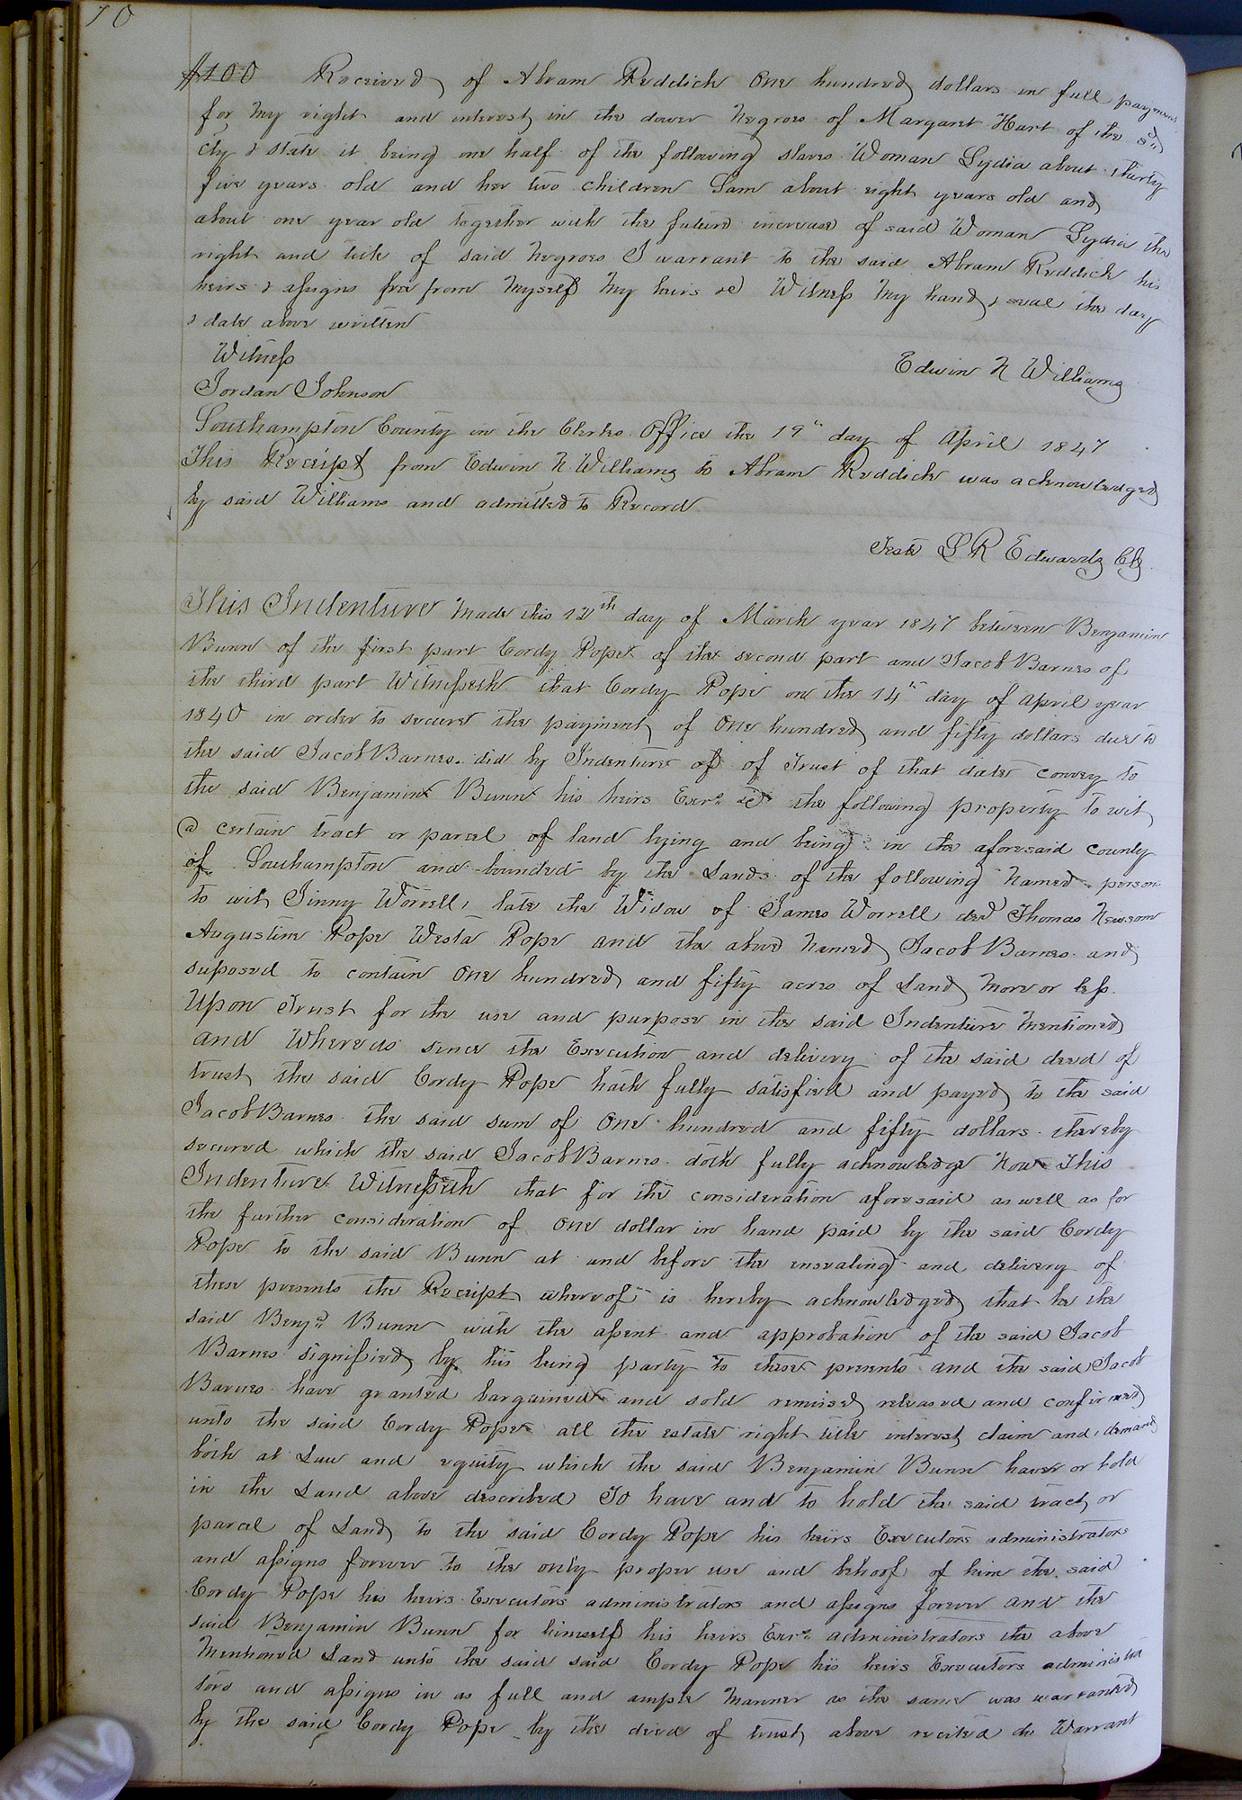 70
$100 Received of Abram Reddick One hundred dollars in full payment
for my right and interest in the dower negroes of Margaret Hart of the sd
cty & state it being one half of the following slaves Woman Lydia about thirty
five years old and her two children Sam about eight years old and
about one year old together with the future increase of said Woman Lydia the
right and title of said negroes I warrant to the said Abram Reddick his
heirs & assigns free from myself my heirs &c Witness my hand & seal the day
& date above written
Witness
Edwin N Williams
Jordan Johnson
Southampton County in the Clerks Office the 19th day of April 1847
This Receipt from Edwin N Williams to Abram Reddick was acknowledged
by said Williams and admitted to Record
Teste L R Edwards Clk
This Indenture made this 12th day of March year 1847 between Benjamin
Bunn of the first part Cordy Pope of the second part and Jacob Barnes of
the third part Witnesseth that Cordy Pope on the 14th day of April year
1840 in order to secure the payment of One hundred and fifty dollars due to
the said Jacob Barnes did by Indenture of of Trust of that date convey to
the said Benjamin Bunn his heirs Exrs &c the following property to wit
a certain tract or parcel of land lying and being in the aforesaid county
of Southampton and bounded by the Lands of the following named person
to wit Jinny Worrell, late the Widow of James Worrell decd Thomas Newsom
Augustine Pope Westa Pope and the above named Jacob Barnes and
suposed to contain One hundred and fifty acres of Land more or less.
Upon Trust for the use and purpose in the said Indenture mentioned
and Whereas since the Execution and delivery of the said deed of
trust the said Cordy Pope hath fully satisfied and payed to the said
Jacob Barnes the said sum of One hundred and fifty dollars thereby
secured which the said Jacob Barnes doth fully acknowledge Now This
Indenture Witnesseth that for the consideration aforesaid as well as for
the further consideration of One dollar in hand paid by the said Cordy
Pope to the said Bunn at and before the ensealing and delivery of
these presents the Receipt whereof is hereby acknowledged that he the
said Benjn Bunn with the assent and approbation of the said Jacob
Barnes signified by his being party to these presents and the said Jacob
Barnes have granted bargained and sold remised released and confirmed
unto the said Cordy Pope all the estate right title interest claim and demand
both at Law and equity which the said Benjamin Bunn have or hold
in the Land above described To have and to hold the said tract or
parcel of Land to the said Cordy Pope his heirs Executors administrators
and assigns forever to the only proper use and behoof of him the said
Cordy Pope his heirs Executors administrators and assigns forever and the
said Benjamin Bunn for himself his heirs Exrs administrators the above
mentioned Land unto the said said Cordy Pope his heirs Executors administra
tors and assigns in as full and ample manner as the same was warranted
by the said Cordy Pope by the deed of trust above recited do Warrant